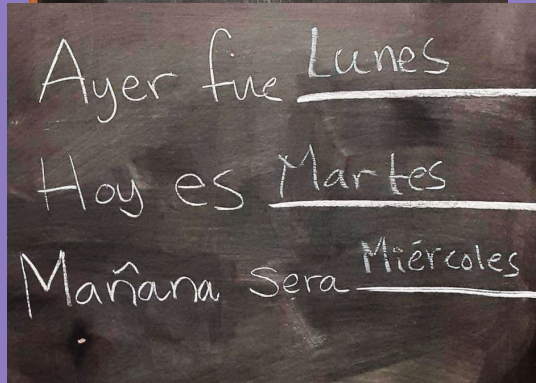 Ayer fue Lunes
Hoy es Martes
Mañana sera Miércoles